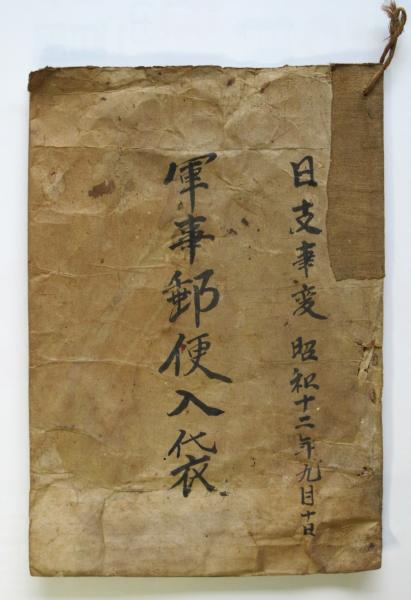 日支事変 昭和十二年九月十日
軍事郵便入袋